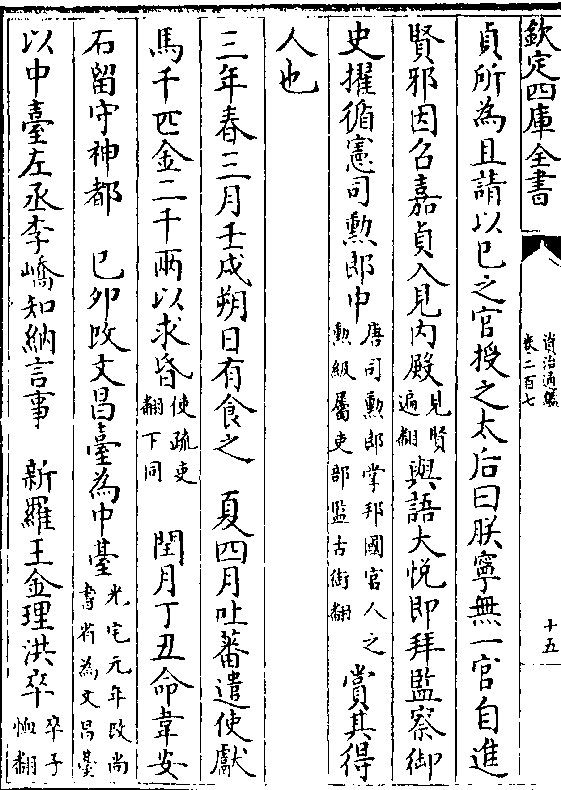 欽定四庫全書
資治通鑑
卷二百七
十五
貞所為且請以已之官授之太后曰朕寧無一官自進
賢邪因召嘉貞入見内殿見賢遍翻與語大悅即拜監察御
史擢循憲司勲郎中唐司勲郎掌邦國官人之勲級屬吏部監古銜翻賞其得
人也
三年春三月壬戌朔日有食之　夏四月吐蕃遣使獻
馬千匹金二千兩以求昏使疏吏翻下同　閏月丁丑命韋安
石留守神都　已夘改文昌臺為中臺光宅元年改尚書省為文昌臺
以中臺左丞李嶠知納言事　新羅王金理洪卒卒子恤翻